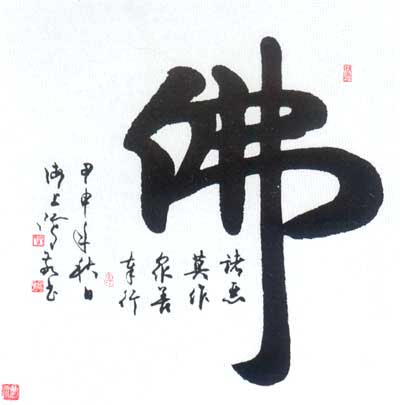 佛
諸惡
莫作
衆善
奉行
甲申年秋日
海上書